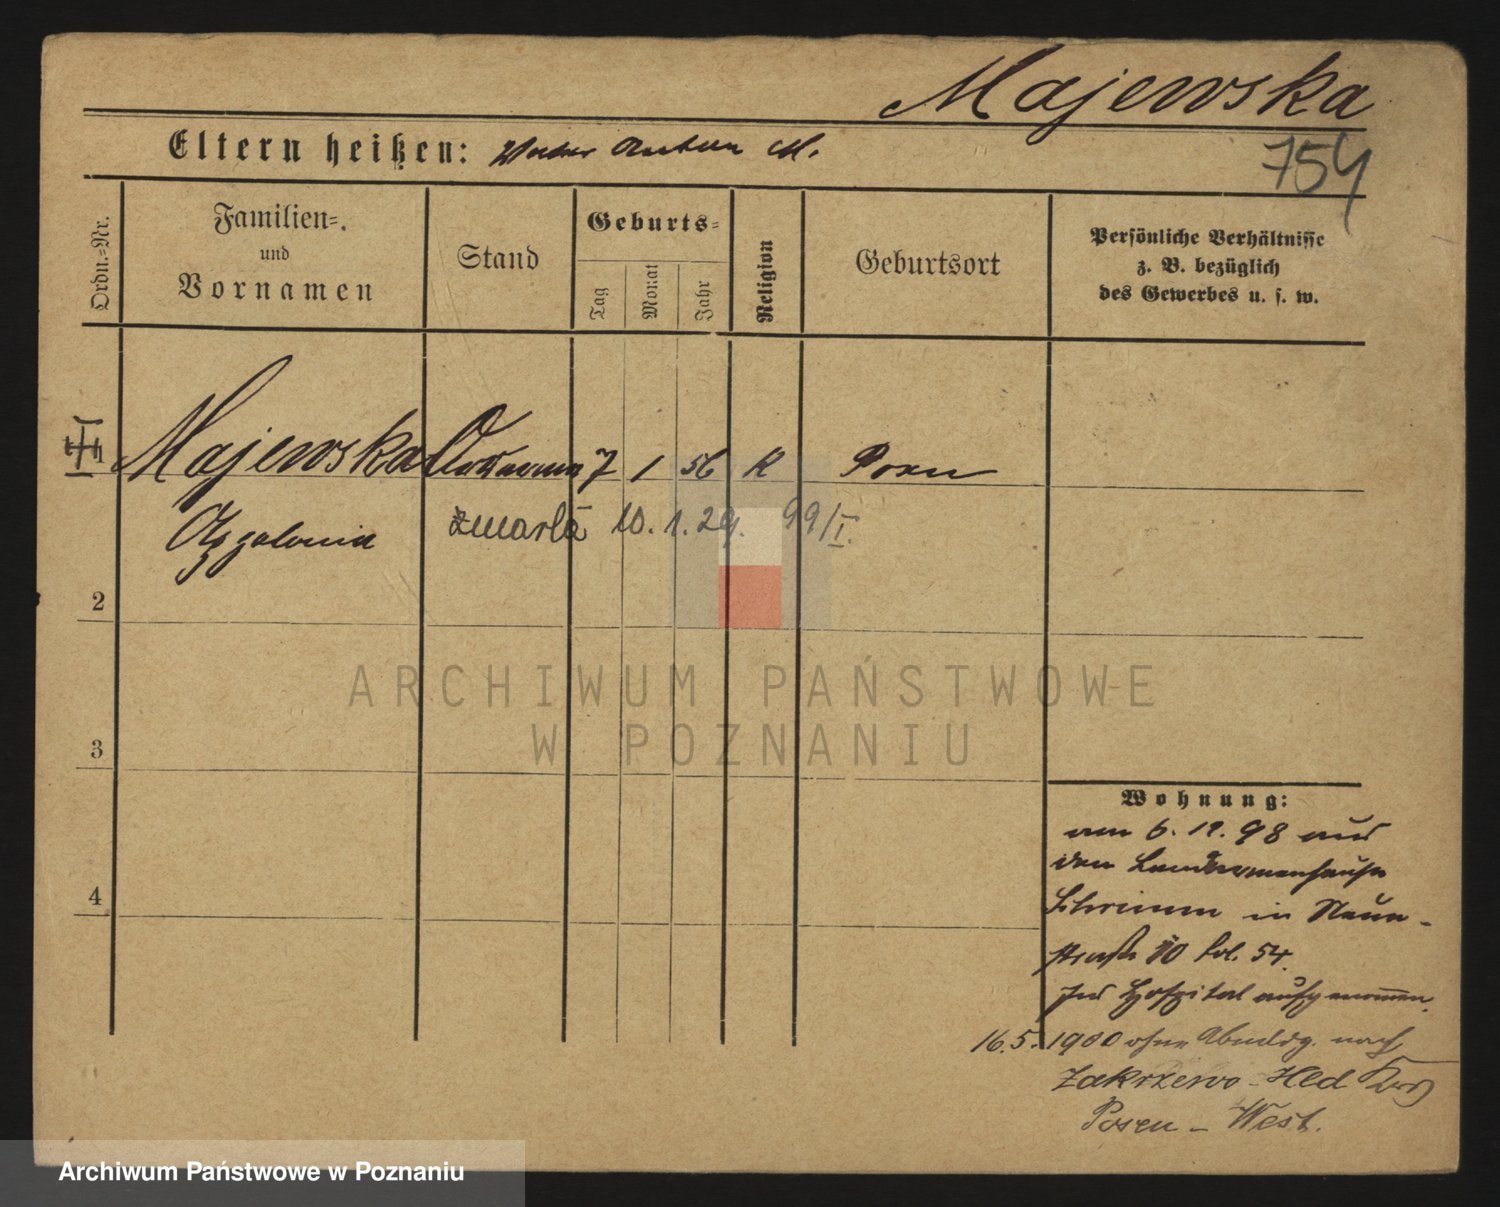 Majewska
Eltern heißen: Vater Anton M.
754
Ordn.=Nr.
Familien=
und
Vornamen
Stand
Geburts=
Tag
Monat
Jahr
Religion
Geburtsort
Persönliche Verhältnisse
z. B. bezüglich
des Gewerbes u. s. w.
1 Majewska 7 1 56 K Posen
Appolonia zmarła 10. 1. 29. 99/I.
2
3
4
ARCHIWUM PAŃSTWOWE
W POZNANIU
Wohnung:
am 6. 12. 98 aus
dem Landarmenhause
Schrimm in Neue-
straße 10 fol. 54.
Ins Hospital aufgenommen.
16.5. 1900 ohne Abmldg. nach
Zakrzewo - Hld
Posen - West.
Archiwum Państwowe w Poznaniu